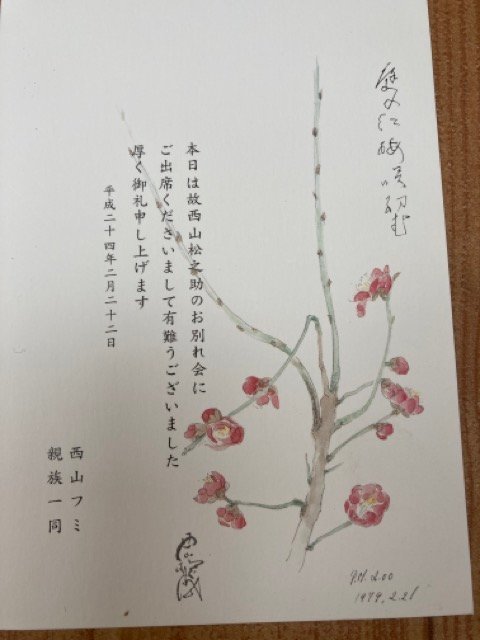 本日は故西山松之助のお別れ会に
ご出席くださいまして有難うございました
厚く御礼申し上げます
平成二十四年二月二十二日
西山フミ
親族一同